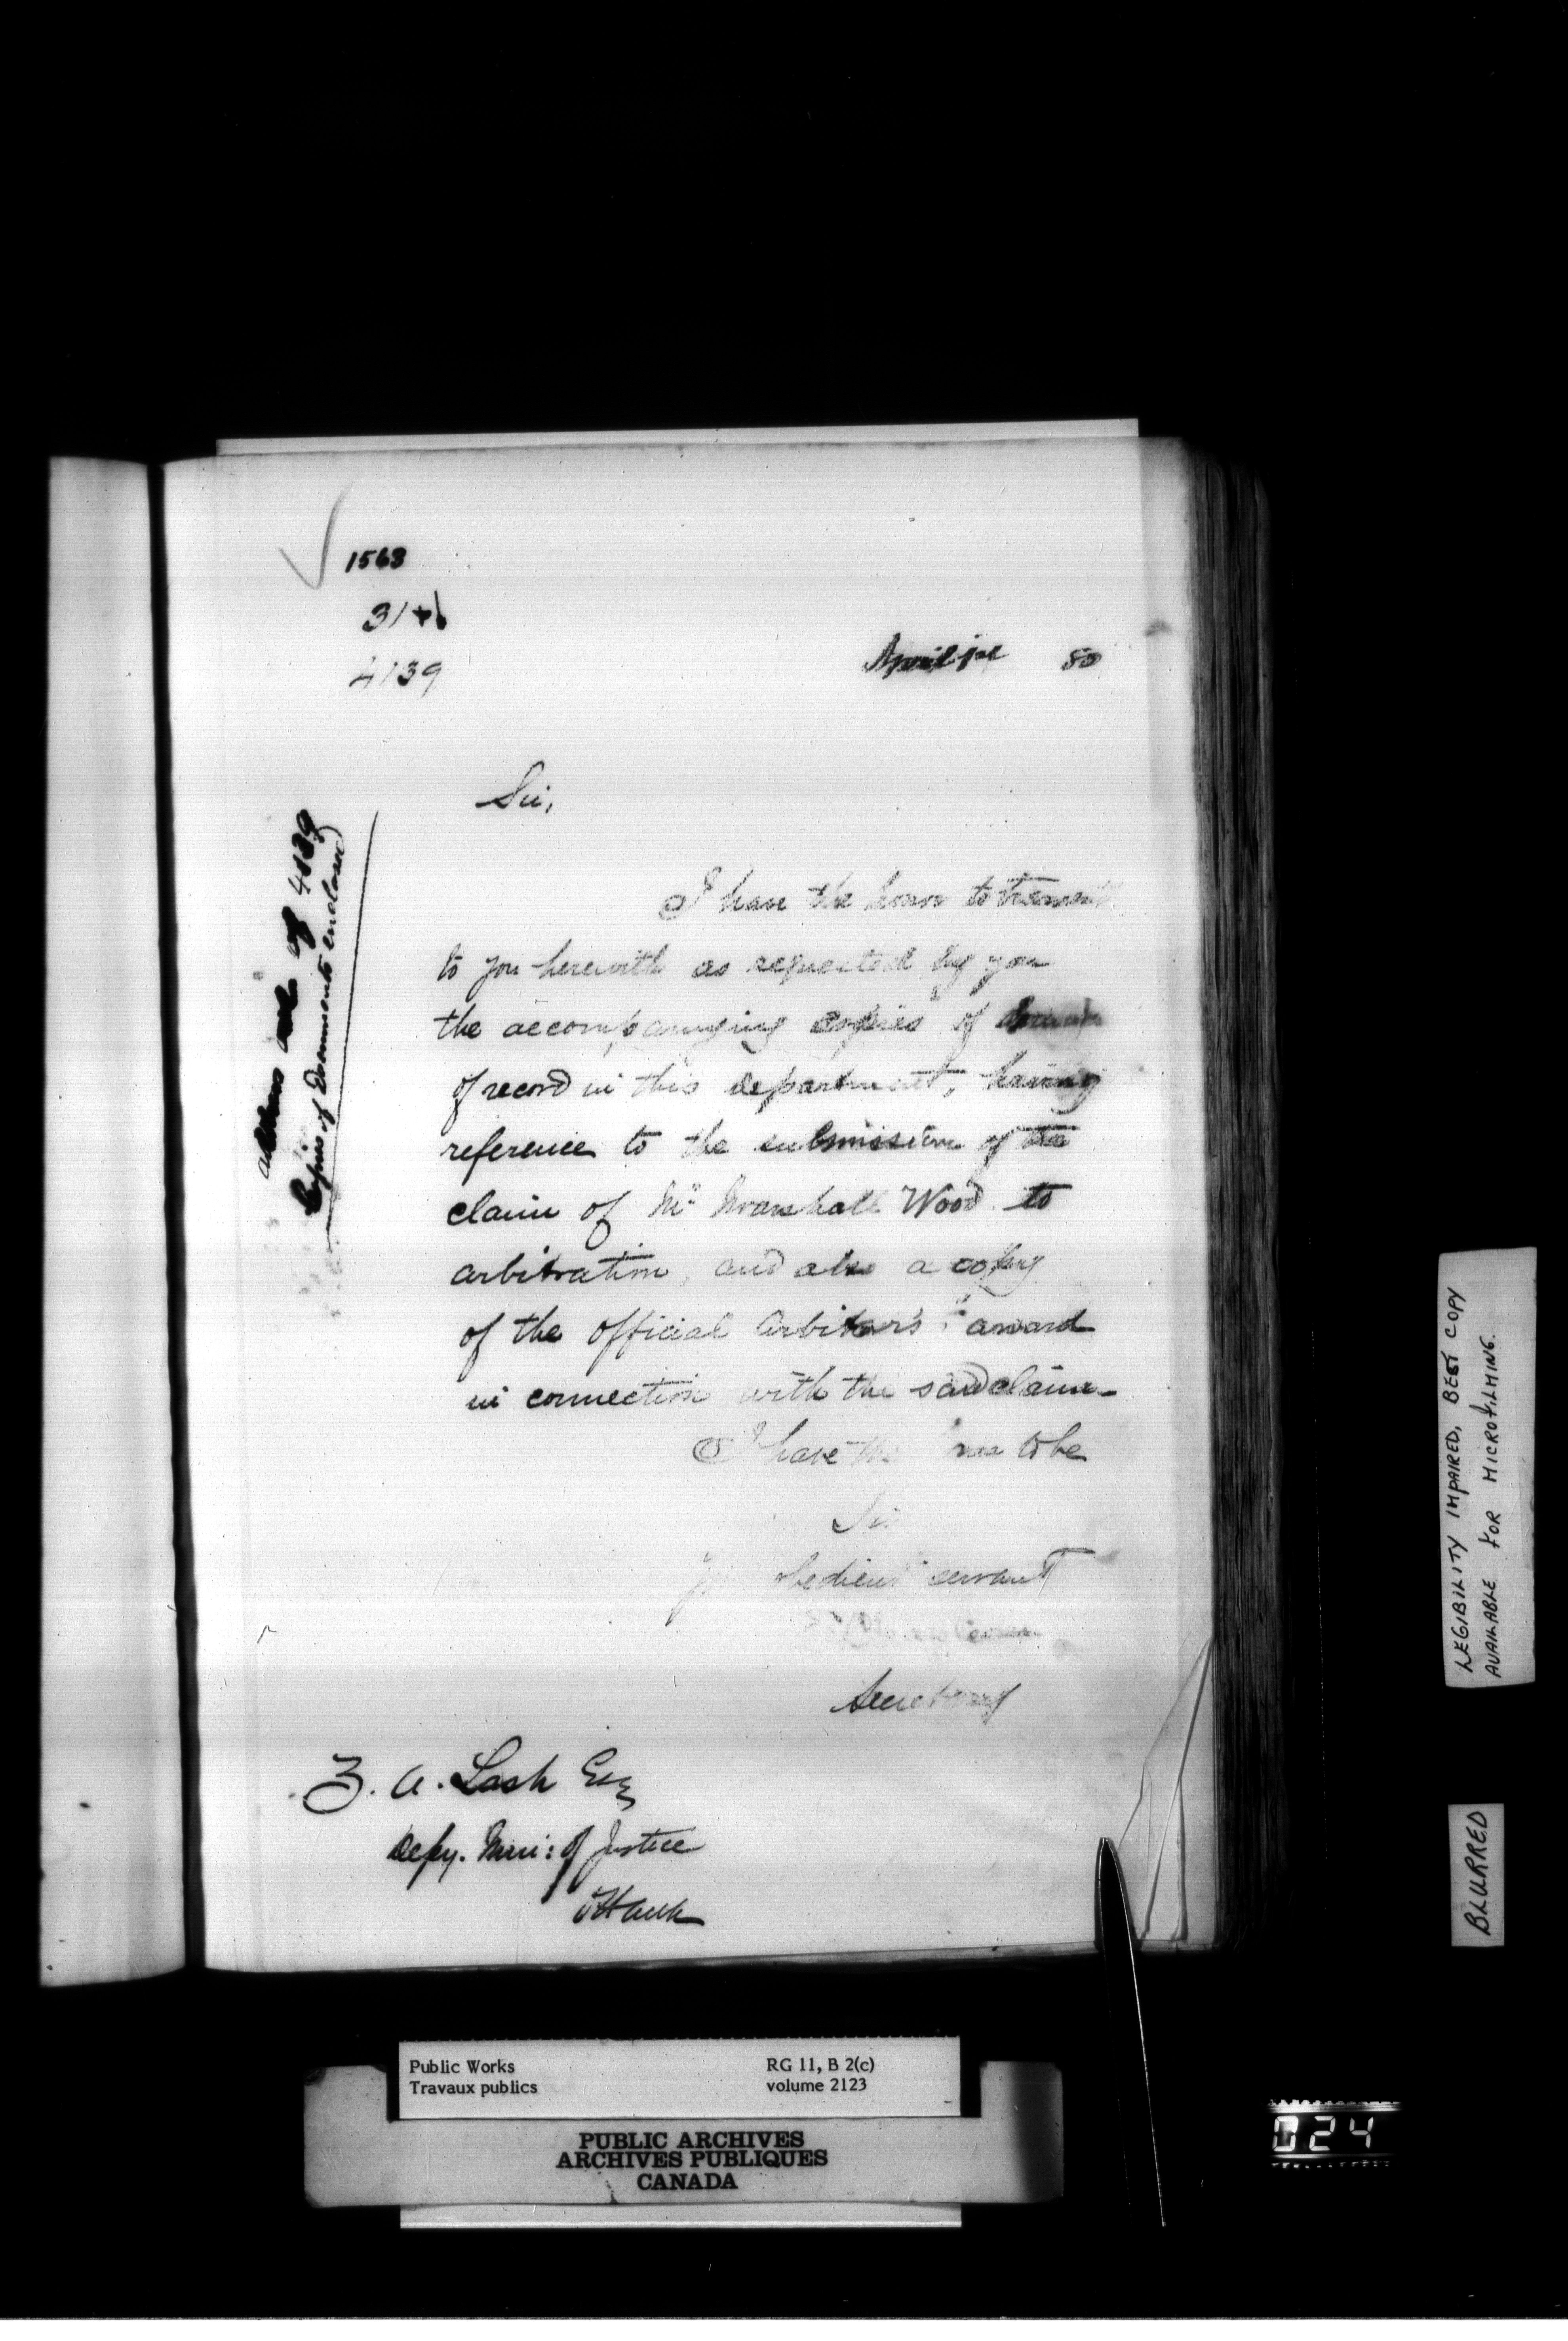 1563
4139
April 1st 80
Sir,
I have the honor to transmit
to you herewith as requested by you
the accompanying copies of
of record in this department, having
reference to the submission of the
claim of Mr Marshall Wood to
arbitration, and also a copy
of the official Arbitrars' award
in connection with the said claim_
I have the to be
Sir
obedient servant
Secretary
Z. A. Lash Esq
Depy. Min: of Justice
Ottawa
of 4139
Copies of Documents enclosed
LEGIBILITY IMPAIRED, BEST COPY
AVAILABLE FOR MICROFILMING.
BLURRED
Public Works
Travaux publics
RG 11, B 2(c)
volume 2123
PUBLIC ARCHIVES
ARCHIVES PUBLIQUES
CANADA
024